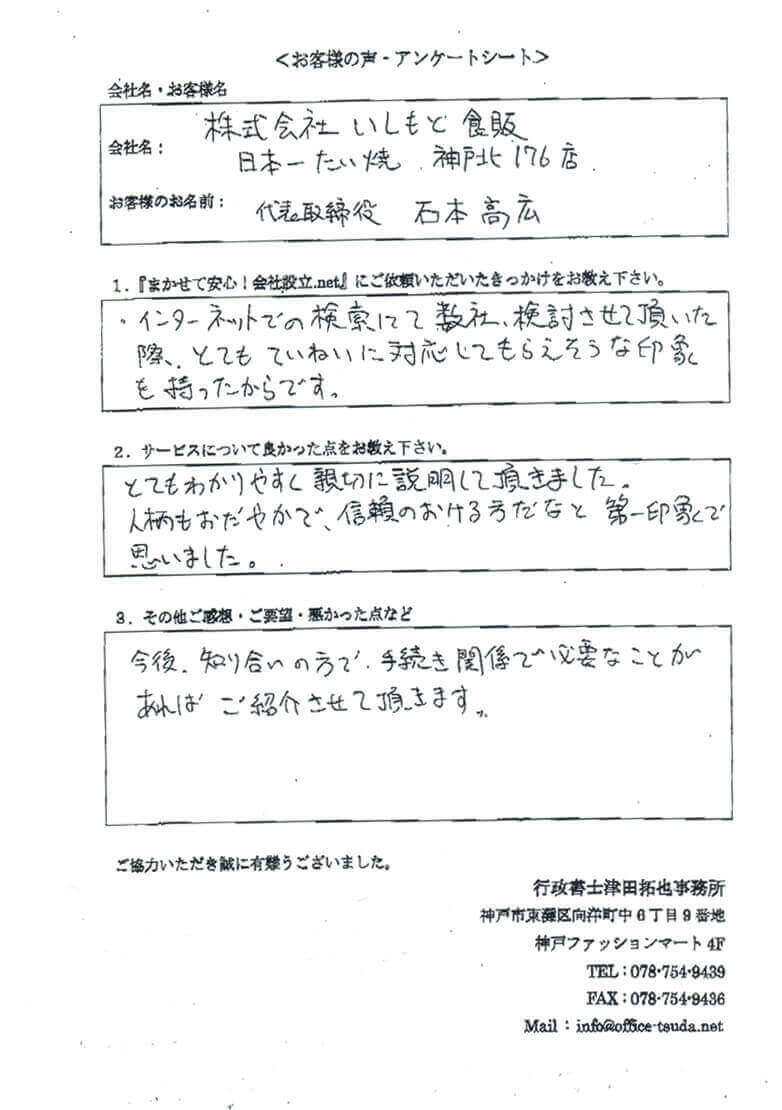 ＜お客様の声・アンケートシート＞
会社名・お客様名
会社名：
株式会社 いしもと食販
日本一たい焼 神戸北176店
お客様のお名前：
代表取締役 石本高広
1．『まかせて安心！会社設立.net』にご依頼いただいたきっかけをお教え下さい。
・インターネットでの検索にて数社、検討させて頂いた
際、とてもていねいに対応してもらえそうな印象
を持ったからです。
2．サービスについて良かった点をお教え下さい。
とてもわかりやすく親切に説明して頂きました。
人柄もおだやかで、信頼のおける方だなと第一印象で
思いました。
3．その他ご感想・ご要望・悪かった点など
今後、知り合いの方で、手続き関係で必要なことが
あればご紹介させて頂きます。
ご協力いただき誠に有難うございました。
行政書士津田拓也事務所
神戸市東灘区向洋町中6丁目9番地
神戸ファッションマート4F
TEL：078-754-9439
FAX：078-754-9436
Mail：info@office-tsuda.net